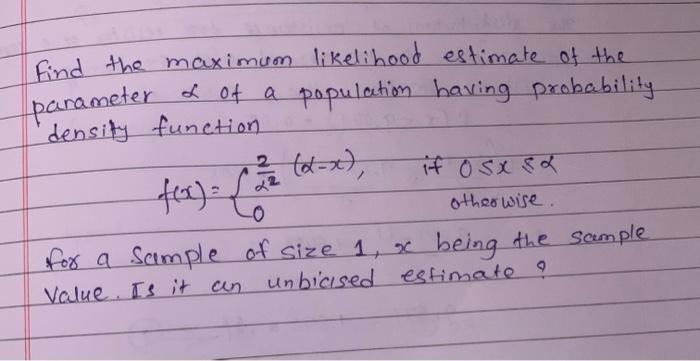 Find the maximum likelihood estimate of the
parameter α of a population having probability
density function
f(x) = { 2/α² (α-x), if 0≤x≤α
0 otherwise.
for a sample of size 1, x being the sample
Value. Is it an unbiased estimate ?